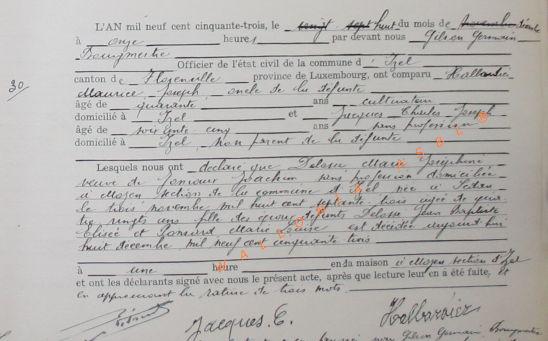 L'AN mil neuf cent cinquante-trois, le huit du mois de décembre
à onze heures par devant nous Gilson Germain
Bourgmestre
Officier de l'état civil de la commune d' Izel
30
canton de province de Luxembourg, ont comparu Halbardier
Maurice Joseph, oncle de la défunte
âgé de quarante ans cultivateur
domicilié à Izel et Jacques Charles Joseph
âgé de soixante cinq ans sans profession
domicilié à Izel, non parent de la défunte
Lesquels nous ont déclaré que Delosse Marie Joséphine
veuve de Joachim sans profession domiciliée
à Moyen section de la commune d'Izel née à
le trois novembre mil huit cent septante trois agée de qua
tre vingts ans fille des époux défunts Delosse Jean Baptiste
Elisée et Marie Louise est décédée aujourd'hui
huit décembre mil neuf cent cinquante trois
à une heure en da maison à Moyen section d'Izel
et ont les déclarants signé avec nous le présent acte, après que lecture leur en a été faite, et
en approuvant la rature de trois mots
Jacques C. Halbardier
Gilson Germain Bourgmestre